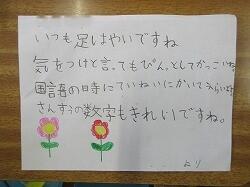 いつも足はやいですね
気をつけと言ってもぴん、としてかっこいいね
国語の時にていねいにかいて
さんすうの数字もきれいですね。
より